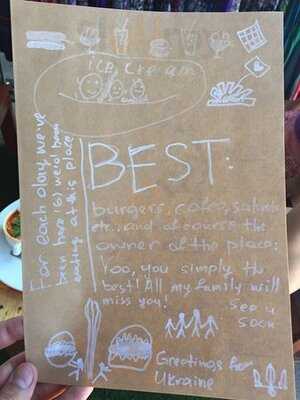 ice cream
For each day we've
been here (6) we'd been
eating at this place
BEST:
burgers, cofee, salads
etc., and of course the
owner of the place:
You, you simply the
best! All my family will
miss you!
See u
soon
Greetings from
Ukraine